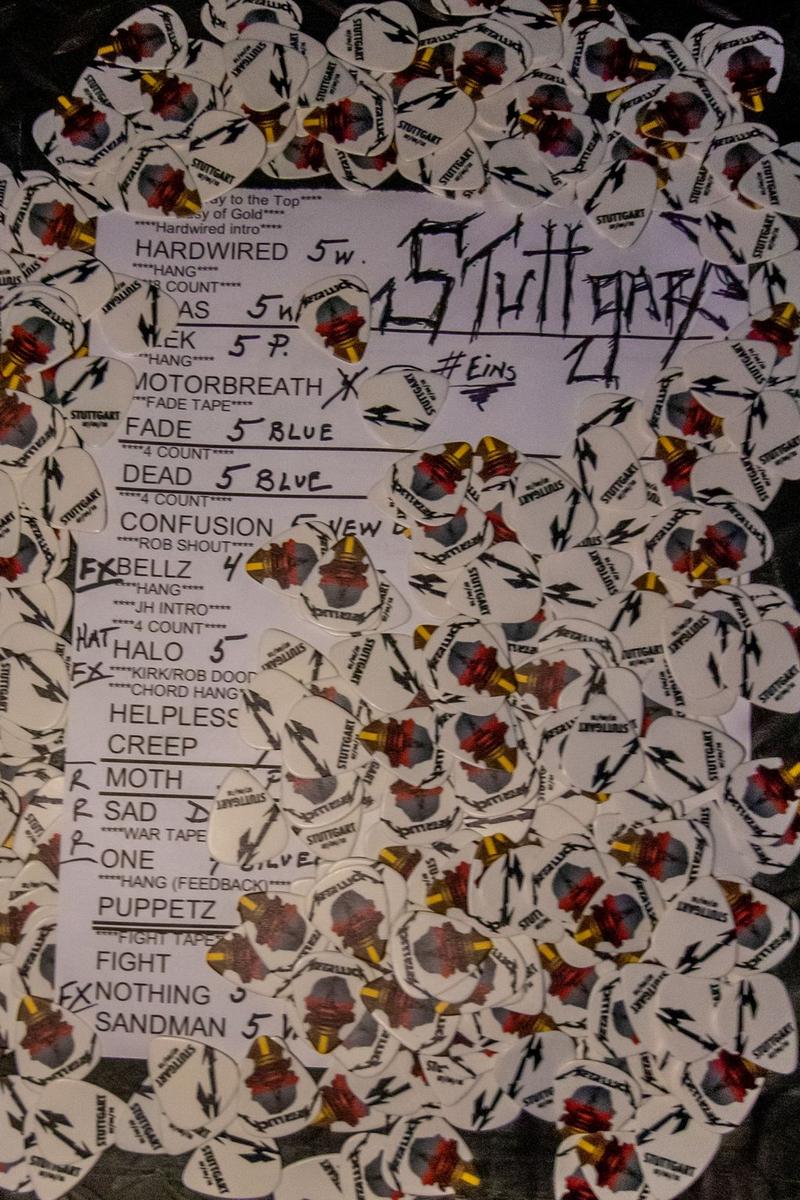 ay to the Top****
sy of Gold****
****Hardwired intro****
HARDWIRED 5 W.
****HANG****
COUNT****
AS 5
Stuttgart
EK 5 P.
#Eins
HANG****
MOTORBREATH X
FADE TAPE****
FADE 5 BLUE
****4 COUNT****
DEAD 5 BLUE
****4 COUNT****
CONFUSION 5 NEW
****ROB SHOUT****
FX BELLZ 4
****HANG****
****JH INTRO****
****4 COUNT****
HAT HALO 5
FX ****KIRK/ROB DOOD
****CHORD HANG*
HELPLESS
CREEP
R MOTH
R SAD D
****WAR TAPE
R ONE
****HANG (FEEDBACK)****
PUPPETZ
****FIGHT TAPE*
FIGHT
FX NOTHING 5
SANDMAN 5
METALLICA
STUTTGART